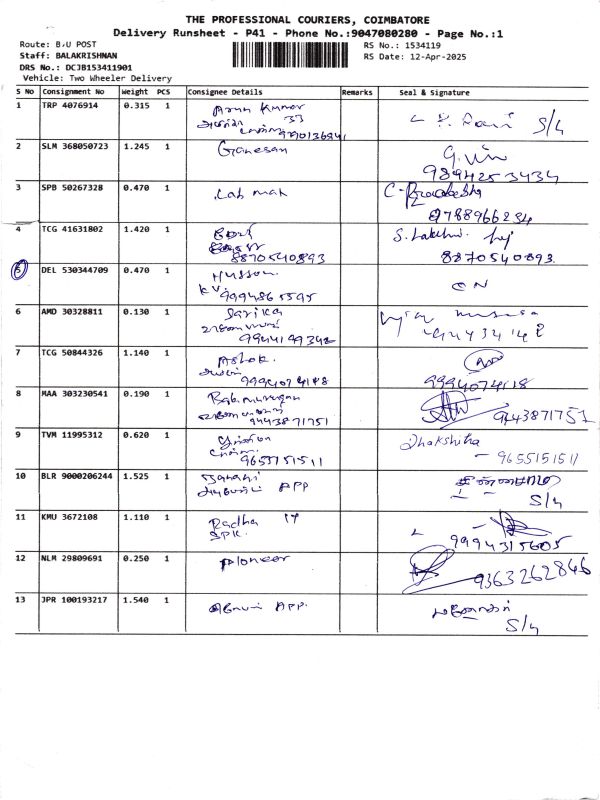 THE PROFESSIONAL COURIERS, COIMBATORE
Delivery Runsheet - P41 - Phone No.:9047080280 - Page No.:1
Route: B.U POST
RS No.: 1534119
Staff: BALAKRISHNAN
RS Date: 12-Apr-2025
DRS No.: DCJB153411901
Vehicle: Two Wheeler Delivery
S No Consignment No Weight PCS Consignee Details Remarks Seal & Signature
1 TRP 4076914 0.315 1 Arun Kumar S/L
33
2 SLM 368050723 1.245 1 Ganesan
9894253434
3 SPB 50267328 0.470 1 Lab mak
9788966234
4 TCG 41631802 1.420 1 S. Lakshmi
8870540893 8870540893
5 DEL 530344709 0.470 1
K.V. 9994865595
6 AMD 30328811 0.130 1 Sarika
9944149342
7 TCG 50844326 1.140 1 Ashok
9994074118 9994074118
8 MAA 303230541 0.190 1 Balamurugan
9443871751 9443871751
9 TVM 11995312 0.620 1 Dhakshitha
9655151511 - 9655151511
10 BLR 9000206244 1.525 1 Janani
APP S/L
11 KMU 3672108 1.110 1 Radha IT
9994315605
12 NLM 29809691 0.250 1 Pioneer
9363262846
13 JPR 100193217 1.540 1 APP.
S/L